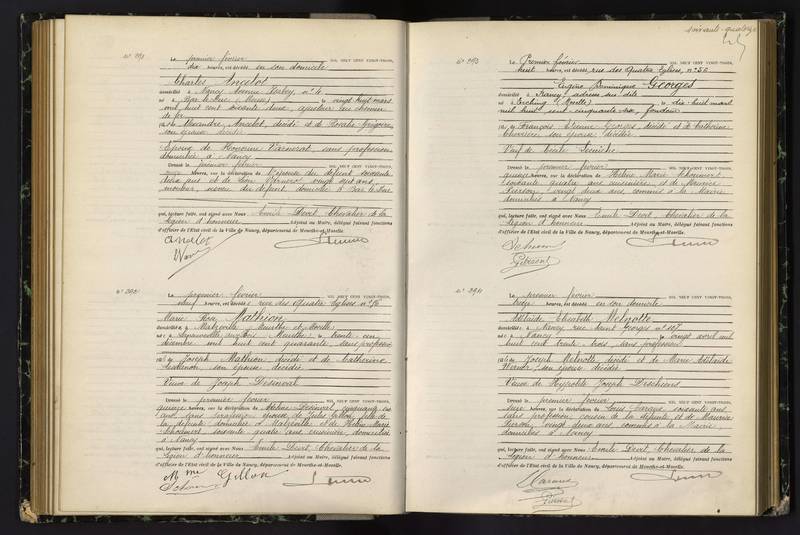 N° 291
Le premier février MIL NEUF CENT VINGT-TROIS,
dix heures, est en son domicile
Charles Ancelot
domicilié à Nancy Avenue N° 4
né à Bar-le-Duc (Meuse) vingt huit mars
mil huit cent soixante du chemin
de fer
fils de Alexandre Ancelot, décédé et de Rosalie Grégoire
son épouse décédée
Epoux de Honorine sans profession
domiciliée à Nancy
Dressé le premier février MIL NEUF CENT VINGT-TROIS,
heures, sur la déclaration de l'épouse du défunt soixante
deux ans et de Léon vingt sept ans
neveu du défunt domicilié à Bar-le-Duc
qui, lecture faite, ont signé avec Nous Emile Devit, Chevalier de la
Légion d'honneur Adjoint au Maire, délégué faisant fonctions
d'officier de l'Etat civil de la Ville de Nancy, département de Meurthe-et-Moselle.
Ancelot
N° 292
Le premier février MIL NEUF CENT VINGT-TROIS,
neuf heures, est rue des Quatre Eglises n° 56
Marie Rose Mathion
domiciliée à Malzéville Meurthe et Moselle
née à (Meurthe) le trente un
décembre mil huit cent quarante sans profession
fille de Joseph Mathion décédé et de Catherine
son épouse décédée
Veuve de Joseph Desinval
Dressé le premier février MIL NEUF CENT VINGT-TROIS,
quinze heures, sur la déclaration de Desinval, cinquante
ans, sans profession épouse de Jules Gillon, fille de
la défunte domiciliée à Malzéville et de Hélène Marie
soixante quatre ans cuisinière, domiciliées
à Nancy
qui, lecture faite, ont signé avec Nous Emile Devit, Chevalier de la
Légion d'honneur Adjoint au Maire, délégué faisant fonctions
d'officier de l'Etat civil de la Ville de Nancy, département de Meurthe-et-Moselle.
Mme Gillon
soixante-quatorze
N° 293
Le Premier février MIL NEUF CENT VINGT-TROIS,
huit heures, est rue des Quatre Eglises, n° 56
Eugène Dominique Georges
domicilié à Nancy, adresse sus dite
né à Erching (Moselle) le dix huit mars
mil huit cent cinquante fondeur
fils de François Etienne Georges décédé et de Catherine
son épouse décédée
Veuf de Emilie
Dressé le premier février MIL NEUF CENT VINGT-TROIS,
quinze heures, sur la déclaration de Hélène Marie
soixante quatre ans cuisinière, et de Maurice
Pierson, vingt deux ans commis à la Mairie
domiciliés à Nancy
qui, lecture faite, ont signé avec Nous Emile Devit, Chevalier de la
Légion d'honneur Adjoint au Maire, délégué faisant fonctions
d'officier de l'Etat civil de la Ville de Nancy, département de Meurthe-et-Moselle.
N° 294
Le premier février MIL NEUF CENT VINGT-TROIS,
heures, est en son domicile
Adélaïde Elisabeth Melnotte
domiciliée à Nancy rue Saint Georges n° 107
née à Nancy le vingt avril mil
huit cent trente trois, sans profession
fille de Joseph Melnotte, décédé et de Marie Adélaïde
son épouse décédée
Veuve de Hypolite Joseph Deschiens
Dressé le premier février MIL NEUF CENT VINGT-TROIS,
seize heures, sur la déclaration de Louis soixante ans
sans profession, cousin de la défunte et de Maurice
Pierson, vingt deux ans, commis à la Mairie,
domiciliés à Nancy
qui, lecture faite, ont signé avec Nous Emile Devit, Chevalier de la
Légion d'honneur Adjoint au Maire, délégué faisant fonctions
d'officier de l'Etat civil de la Ville de Nancy, département de Meurthe-et-Moselle.